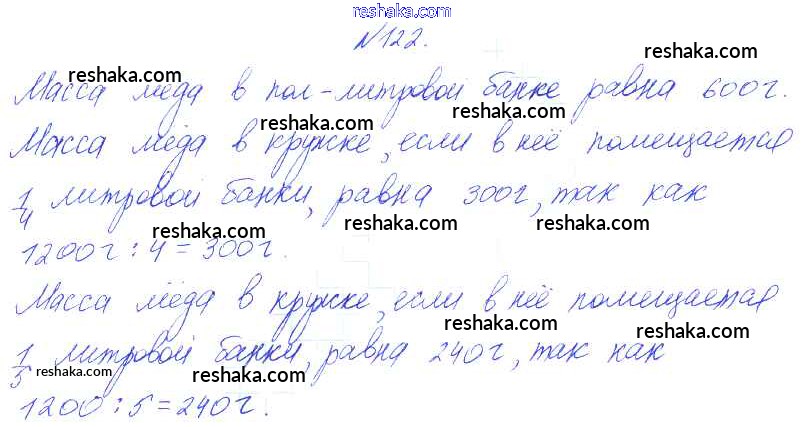 www.reshaka.com
№122.
reshaka.com reshaka.com
Масса мёда в пол-литровой банке равна 600г.
reshaka.com reshaka.com
Масса мёда в кружке, если в неё помещается
1/4 литровой банки, равна 300г, так как
reshaka.com reshaka.com
1200г : 4 = 300г.
Масса мёда в кружке, если в неё помещается
reshaka.com reshaka.com
1/5 литровой банки, равна 240г, так как
reshaka.com reshaka.com reshaka.com
1200 : 5 = 240г.